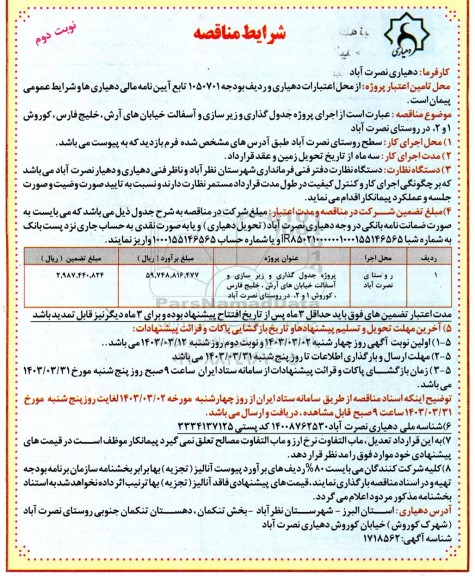 نوبت دوم
شرایط مناقصه
دهیاری
کارفرما: دهیاری نصرت آباد
محل تامین اعتبار پروژه: از محل اعتبارات دهیاری و ردیف بودجه ۱۰۵۰۷۰۱ تابع آیین نامه مالی دهیاری ها و شرایط عمومی
پیمان است.
موضوع مناقصه: عبارت است از اجرای پروژه جدول گذاری و زیر سازی و آسفالت خیابان های آرش، خلیج فارس، کوروش
۱ و ۲، در روستای نصرت آباد
۱) محل اجرای کار: سطح روستای نصرت آباد طبق آدرس های مشخص شده فرم بازدید که به پیوست می باشد.
۲) مدت اجرای کار: سه ماه از تاریخ تحویل زمین و عقد قرارداد.
۳) دستگاه نظارت: دستگاه نظارت دفتر فنی فرمانداری شهرستان نظرآباد و ناظر فنی دهیاری و دهیار نصرت آباد می باشد
که بر چگونگی اجرای کار و کنترل کیفیت در طول مدت قرارداد مستمر نظارت دارند و نسبت به تایید صورت وضیت و صورت
جلسه و عملکرد پیمانکار اقدام می نماید.
۴) مبلغ تضمین شرکت در مناقصه و مدت اعتبار: مبلغ شرکت در مناقصه به شرح جدول ذیل می باشد که می بایست به
صورت ضمانت نامه بانکی در وجه دهیاری نصرت آباد (تحویل دهیاری) و یا به صورت نقدی به حساب جاری نزد پست بانک
به شماره شبا و یا شماره حساب ۱۰۰۰۱۵۵۱۴۶۵۶۵ واریز نمایند.
ردیف محل اجرا عنوان پروژه مبلغ برآورد (ریال) مبلغ تضمین (ریال)
۱ روستای نصرت آباد پروژه جدول گذاری و زیر سازی و آسفالت خیابان های آرش، خلیج فارس، کوروش ۱ و ۲، در روستای نصرت آباد ۵۹،۷۴۸،۸۱۶،۴۷۷ ۲،۹۸۷،۴۴۰،۸۲۴
ParsNamadData
مدت اعتبار تضمین های فوق باید حداقل ۳ ماه پس از تاریخ افتتاح پیشنهاد بوده و برای ۳ ماه دیگر نیز قابل تمدید باشد
۵) آخرین مهلت تحویل و تسلیم پیشنهادها و تاریخ بازگشایی پاکات و قرائت پیشنهادات:
۵-۱) اولین نوبت آگهی روز چهارشنبه ۱۴۰۳/۰۳/۰۲ و نوبت دوم روز شنبه ۱۴۰۳/۰۳/۱۲ می باشد..
۵-۲) مهلت ارسال و بارگذاری اطلاعات تا روز پنج شنبه ۱۴۰۳/۰۳/۳۱ می باشد
۵-۳) زمان بازگشایی پاکات و قرائت پیشنهادات از سامانه ستاد ایران ساعت ۹ صبح روز پنج شنبه مورخ ۱۴۰۳/۰۳/۳۱
می باشد.
توضیح اینکه اسناد مناقصه از طریق سامانه ستاد ایران از روز چهارشنبه مورخه ۱۴۰۳/۰۳/۰۲ لغایت روز پنج شنبه مورخ
۱۴۰۳/۰۳/۳۱ ساعت ۹ صبح قابل مشاهده، دریافت و ارسال می باشد.
۶) شناسه ملی دهیاری نصرت آباد: ۱۴۰۰۸۷۶۲۵۳۰ کد پستی ۳۳۳۴۱۳۷۱۲۵
۷) به این قرارداد تعدیل، مابه التفاوت نرخ ارز و مابه التفاوت مصالح تعلق نمی گیرد پیمانکار موظف است در قیمت های
پیشنهادی خود موارد فوق را مدنظر قرار دهد.
۸) کلیه شرکت کنندگان می بایست ۸۰% ردیف های برآورد پیوست آنالیز (تجزیه) بها برابر بخشنامه سازمان برنامه بودجه
تهیه و در اسناد مناقصه بارگذاری نمایند، قیمت های پیشنهادی فاقد آنالیز (تجزیه) بها ترتیب اثر داده نخواهد شد به استناد
بخشنامه مذکور مردود اعلام می گردد.
آدرس دهیاری: استان البرز - شهرستان نظرآباد - بخش تنکمان، دهستان تنکمان جنوبی روستای نصرت آباد
(شهرک کوروش) خیابان کوروش دهیاری نصرت آباد
شناسه آگهی: ۱۷۱۸۵۶۲